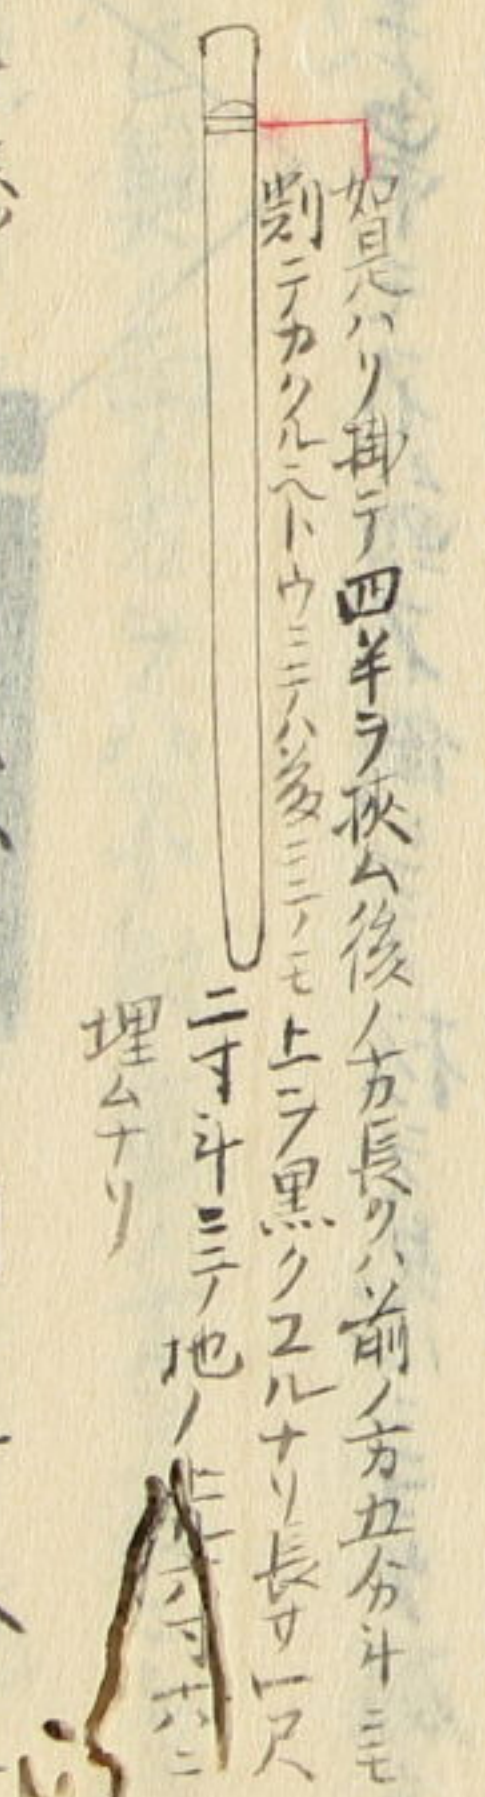 如是ハリ掛テ四半ヲ挾ム後ノ方長クハ前ノ方五分斗ニモ
割テカクルヘトウニテハ ニテモ上ヲ黒クヌルナリ長サ一尺
二寸斗ニテ地ノ 六寸
埋ムナリ